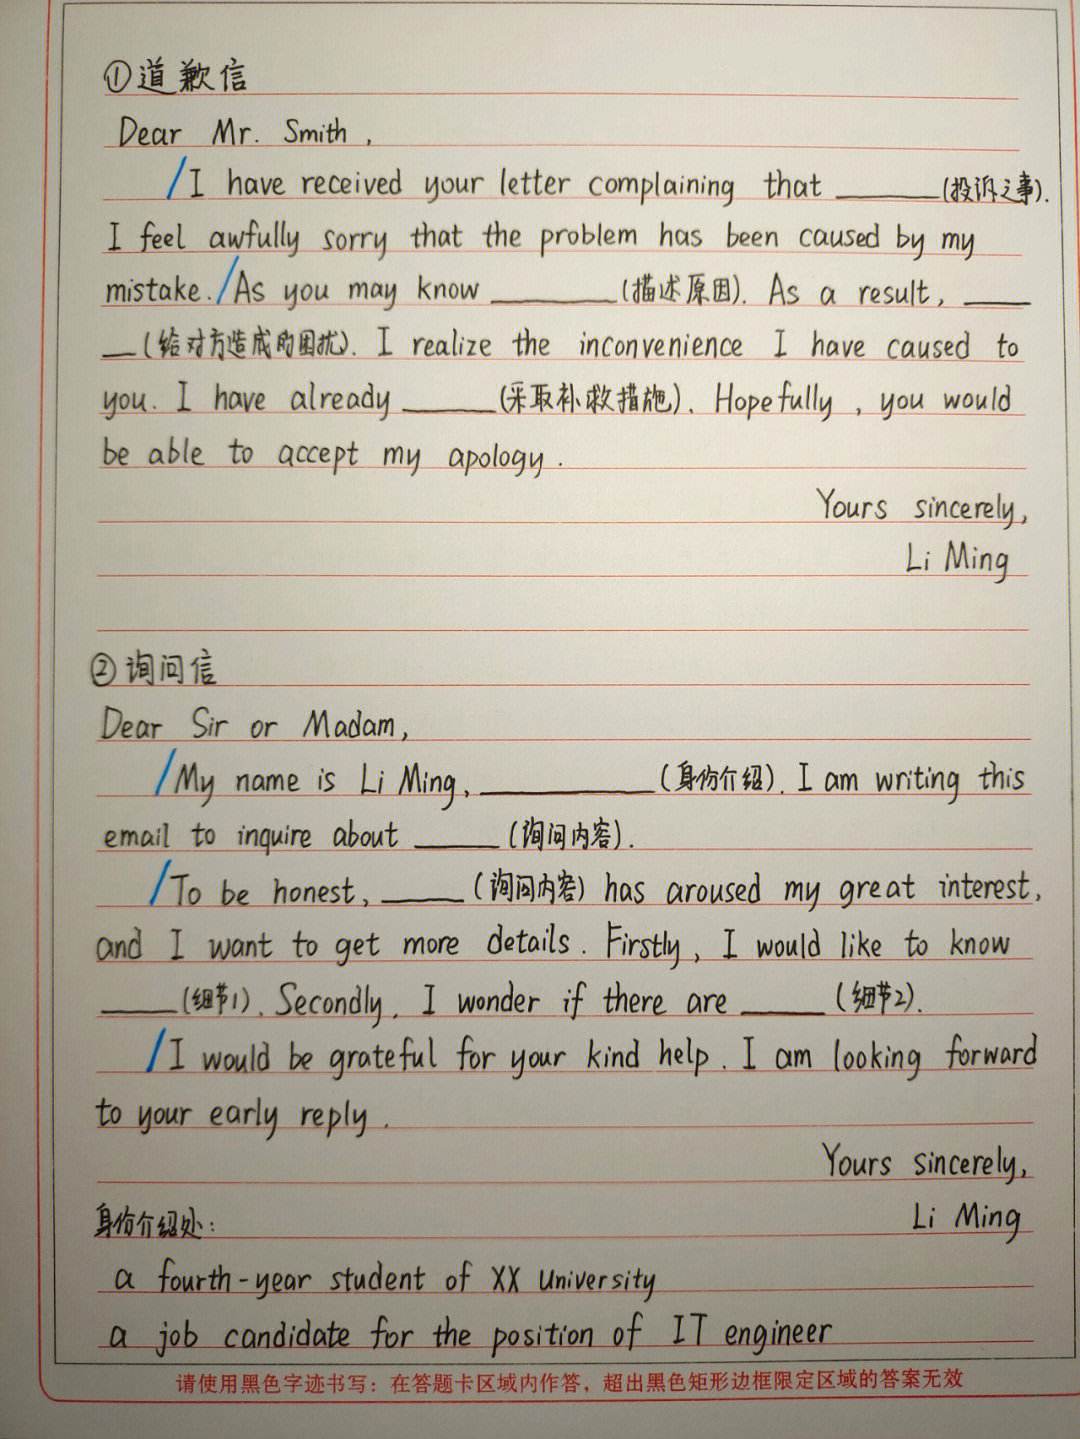 ①道歉信
Dear Mr. Smith,
/I have received your letter complaining that ______(投诉之事).
I feel awfully sorry that the problem has been caused by my
mistake./As you may know ______(描述原因). As a result, ___
__(给对方造成的困扰). I realize the inconvenience I have caused to
you. I have already _____(采取补救措施). Hopefully, you would
be able to accept my apology.
Yours sincerely,
Li Ming
②询问信
Dear Sir or Madam,
/My name is Li Ming, ________(身份介绍). I am writing this
email to inquire about ____(询问内容).
/To be honest, ____(询问内容) has aroused my great interest,
and I want to get more details. Firstly, I would like to know
____(细节1). Secondly, I wonder if there are ____(细节2).
/I would be grateful for your kind help. I am looking forward
to your early reply.
Yours sincerely,
Li Ming
身份介绍处:
a fourth-year student of XX University
a job candidate for the position of IT engineer
请使用黑色字迹书写：在答题卡区域内作答，超出黑色矩形边框限定区域的答案无效